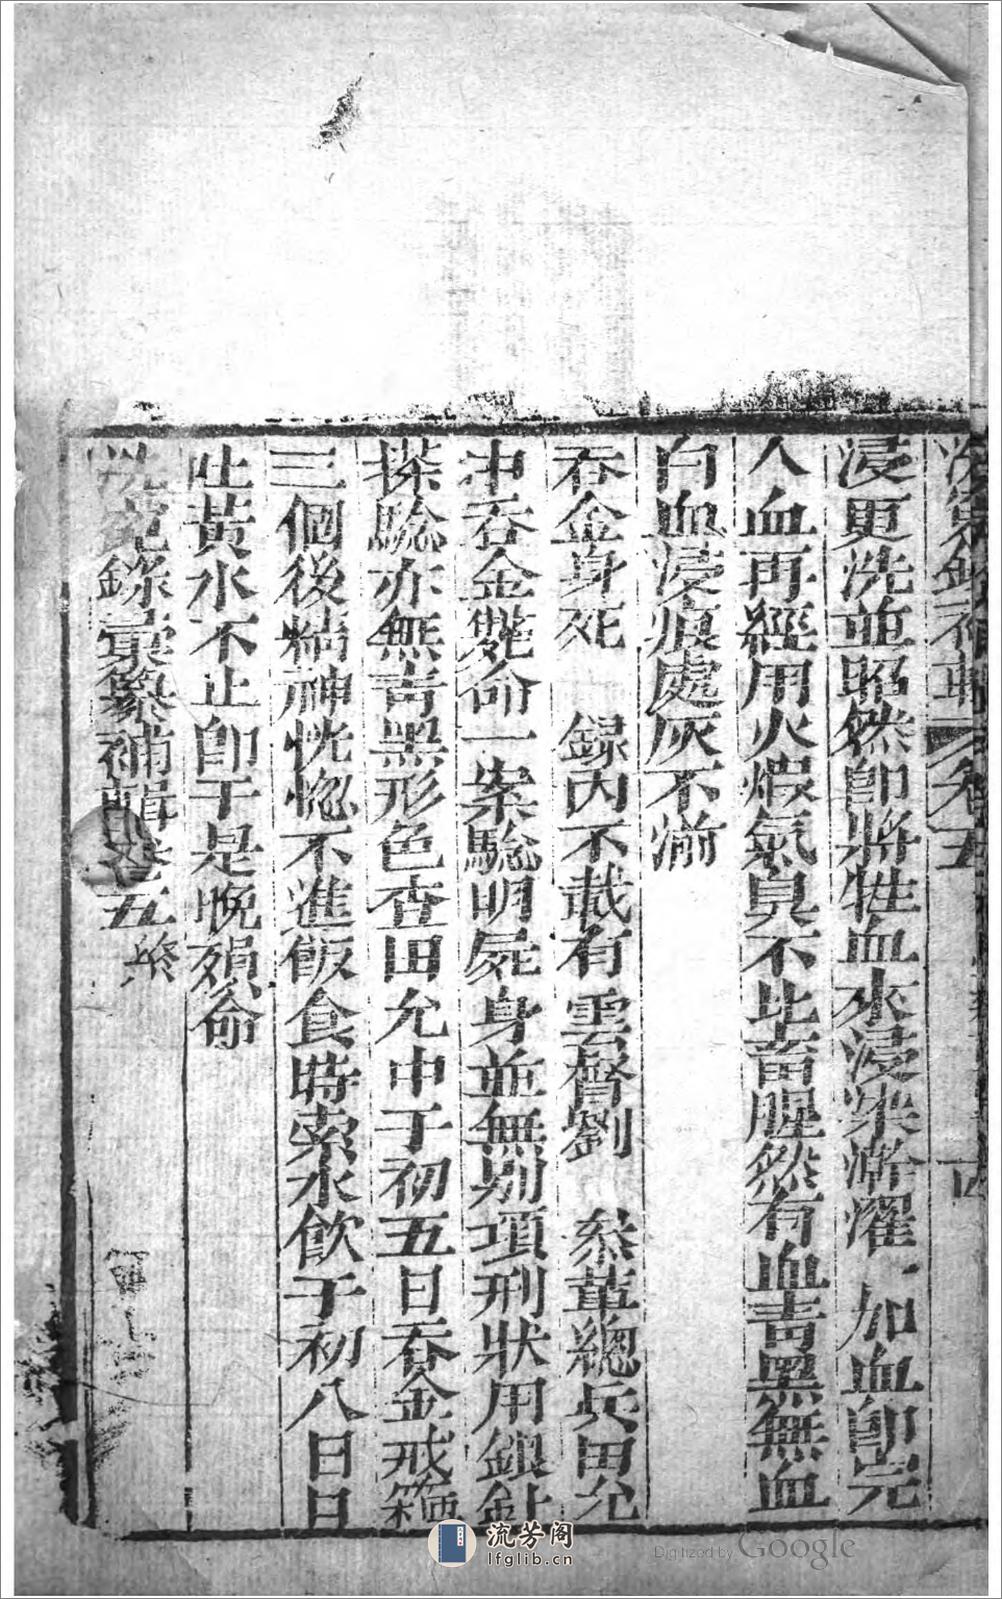 浸更洗並昭然卽將牲血來浸染澣濯一加血卽完
人血再經用火煆氣臭不比畜腥然有血靑黑無血
白血浸痕處灰不淪
吞金身死　錄內不載有雲督劉　叅革總兵田允
中吞金斃命一案驗明屍身並無別項刑狀用銀針
探驗亦無靑黑形色查田允中于初五日吞金戒箍
三個後精神恍惚不進飯食時索水飮于初八日日
吐黃水不止卽于是晚殞命
洗冤錄彙纂補輯卷五終
流芳阁
lfglib.cn
Digitized by Google